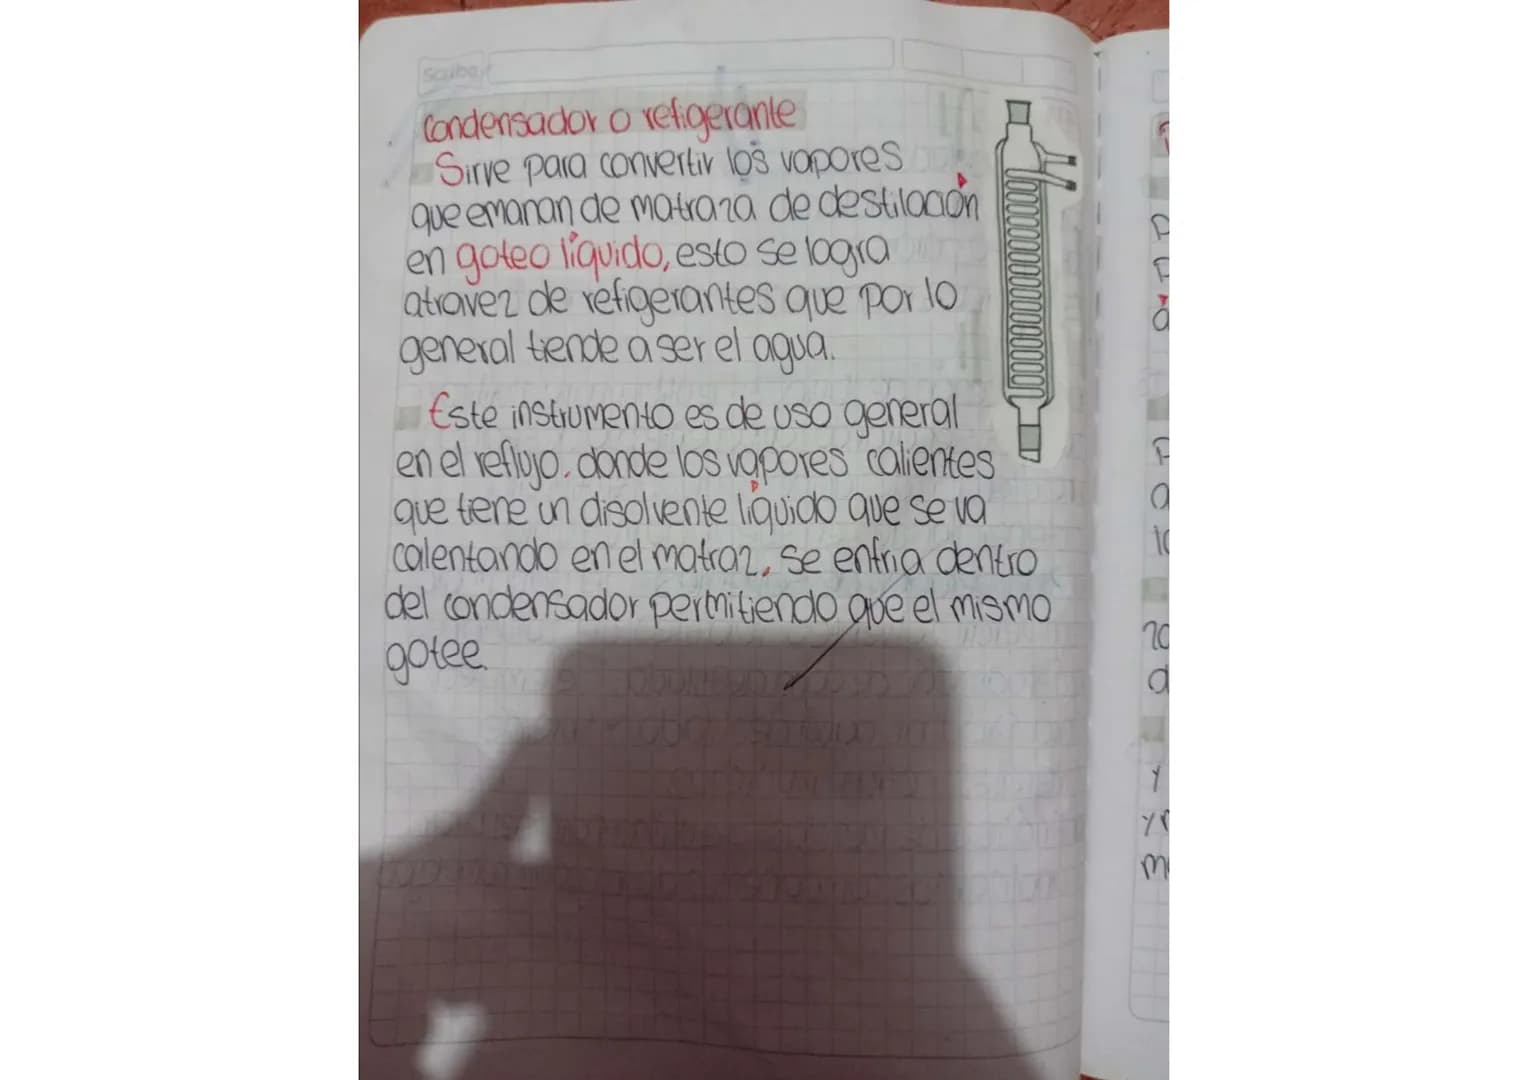 Scribe
Condensador o refigerante
Sirve para convertir los vapores
que emanan de matraza de destilación
en goteo líquido, esto se logra
atravez de refigerantes que por lo
general tiende a ser el agua.
Este instrumento es de uso general
en el reflujo. donde los vapores calientes
que tiene un disolvente líquido que se va
calentando en el matraz, se enfria dentro
del condensador permitiendo que el mismo
gotee.